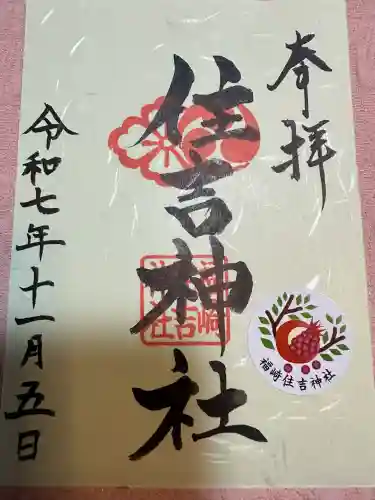 奉拝
住吉神社
福崎住吉神社
令和七年十一月五日
福崎住吉神社